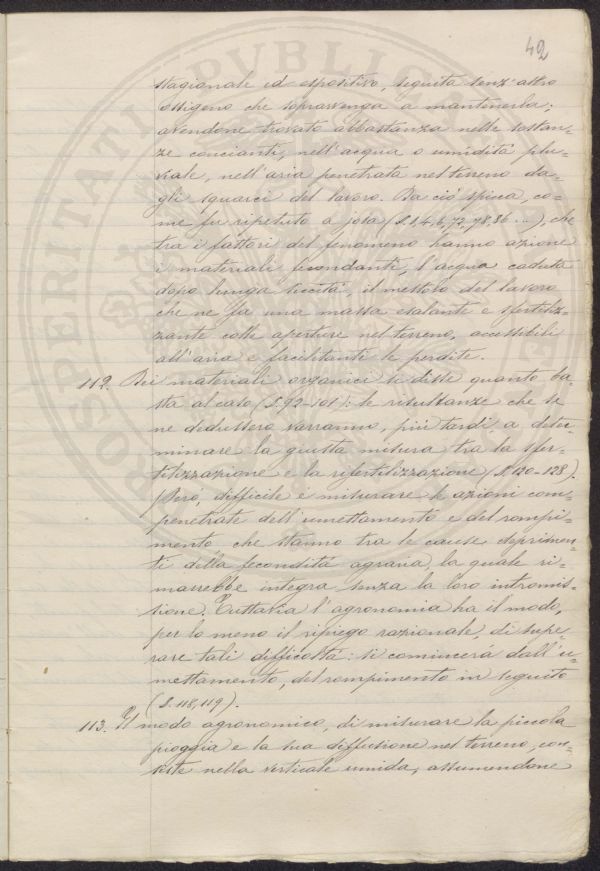 42
stagionale ed espositivo, seguita senz'altro
ossigeno che sopravvenga a mantenerla;
avendone trovato abbastanza nelle sostan-
ze concianti, nell'acqua o umidità plu-
viale, nell'aria penetrata nel terreno da-
gli squarci del lavoro. Da ciò spicca, co-
me fu ripetuto a josa (S. 1, 4, 6, 72, 78, 86 ...), che
tra i fattori del fenomeno hanno azione
i materiali fecondanti, l'acqua caduta
dopo lunga siccità, il metodo del lavoro
che ne fa una massa esalante e sfertiliz-
zante colle aperture nel terreno, accessibili
all'aria e facilitenti le perdite.
112. Dei materiali organici si disse quanto ba-
sta al caso (S. 92-101): le risultanze che se
ne dedussero varranno, più tardi, a deter-
minare la giusta misura tra la sfer-
tilizzazione e la rifertilizzazione (S. 120-128).
Però, difficile è misurare le azioni com-
penetrate dell'umettamento e del rompi-
mento che stanno tra le cause deprimen-
ti della fecondità agraria, la quale ri-
marrebbe integra senza la loro intromis-
sione. Tuttavia l'agronomia ha il modo,
per lo meno il ripiego razionale, di supe-
rare tali difficoltà: si comincerà dall'u-
mettamento, del rompimento in seguito
(S. 118, 119).
113. Il modo agronomico, di misurare la piccola
pioggia e la sua diffusione nel terreno, con-
siste nella verticale umida, assumendone